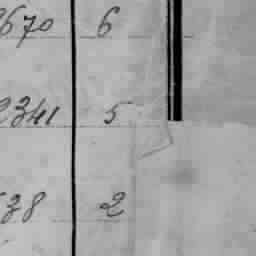 670 6
2341 5
38 2